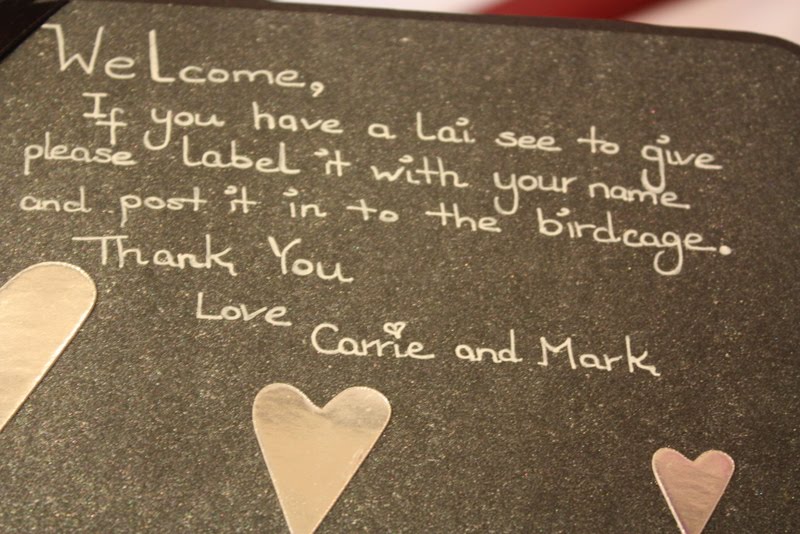 Welcome,
If you have a lai see to give
please label it with your name
and post it in to the birdcage.
Thank You
Love
Carrie and Mark